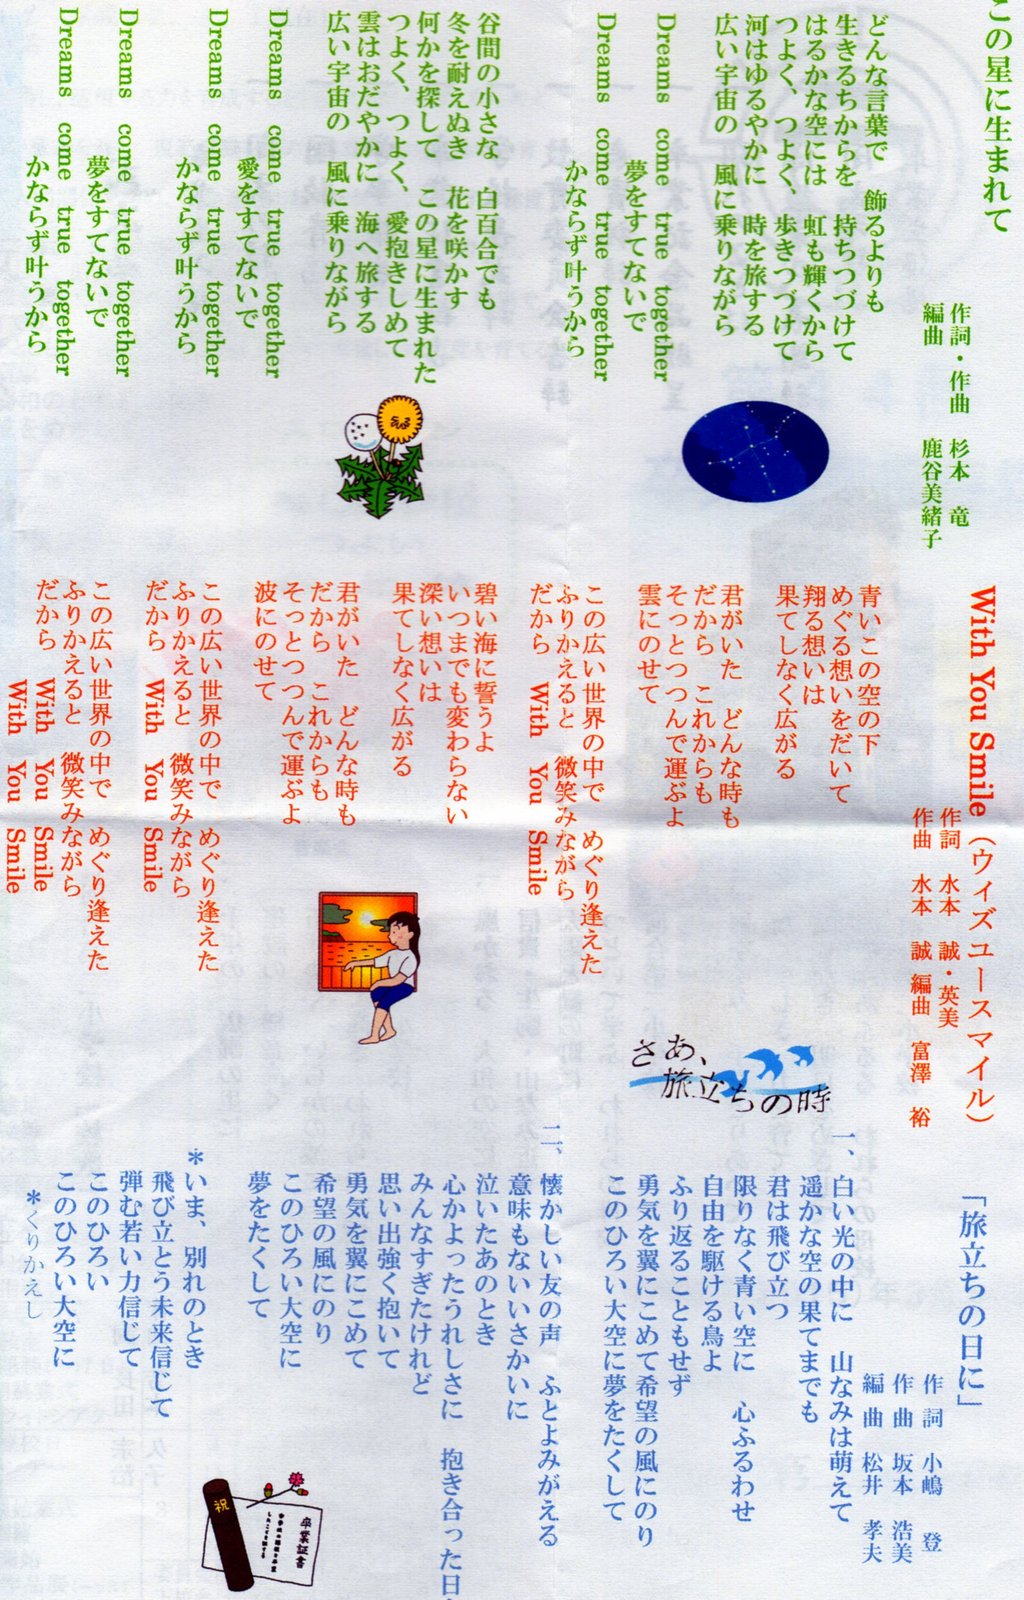 この星に生まれて
作詞・作曲 杉本 竜
編曲 鹿谷美緒子
どんな言葉で 飾るよりも
生きるちからを 持ちつづけて
はるかな空には 虹も輝くから
つよく、つよく、歩きつづけて
河はゆるやかに 時を旅する
広い宇宙の 風に乗りながら
Dreams come true together
夢をすてないで
Dreams come true together
かならず叶うから
谷間の小さな 白百合でも
冬を耐えぬき 花を咲かす
何かを探して この星に生まれた
つよく、つよく、愛抱きしめて
雲はおだやかに 海へ旅する
広い宇宙の 風に乗りながら
Dreams come true together
愛をすてないで
Dreams come true together
かならず叶うから
Dreams come true together
夢をすてないで
Dreams come true together
かならず叶うから
With You Smile(ウィズユースマイル)
作詞 水本 誠・英美
作曲 水本 誠 編曲 富澤 裕
青いこの空の下
めぐる想いをだいて
翔る想いは
果てしなく広がる
君がいた どんな時も
だから これからも
そっとつつんで運ぶよ
雲にのせて
この広い世界の中で めぐり逢えた
ふりかえると 微笑みながら
だから With You Smile
碧い海に誓うよ
いつまでも変わらない
深い想いは
果てしなく広がる
君がいた どんな時も
だから これからも
そっとつつんで運ぶよ
波にのせて
この広い世界の中で めぐり逢えた
ふりかえると 微笑みながら
だから With You Smile
この広い世界の中で めぐり逢えた
ふりかえると 微笑みながら
だから With You Smile
With You Smile
さあ、
旅立ちの時
「旅立ちの日に」
作詞 小嶋 登
作曲 坂本 浩美
編曲 松井 孝夫
一、白い光の中に 山なみは萌えて
遥かな空の果てまでも
君は飛び立つ
限りなく青い空に 心ふるわせ
自由を駆ける鳥よ
ふり返ることもせず
勇気を翼にこめて希望の風にのり
このひろい大空に夢をたくして
二、懐かしい友の声 ふとよみがえる
意味もないいさかいに
泣いたあのとき
心かよったうれしさに 抱き合った日
みんなすぎたけれど
思い出強く抱いて
勇気を翼にこめて
希望の風にのり
このひろい大空に
夢をたくして
*いま、別れのとき
飛び立とう未来信じて
弾む若い力信じて
このひろい
このひろい大空に
*くりかえし
祝
卒業証書